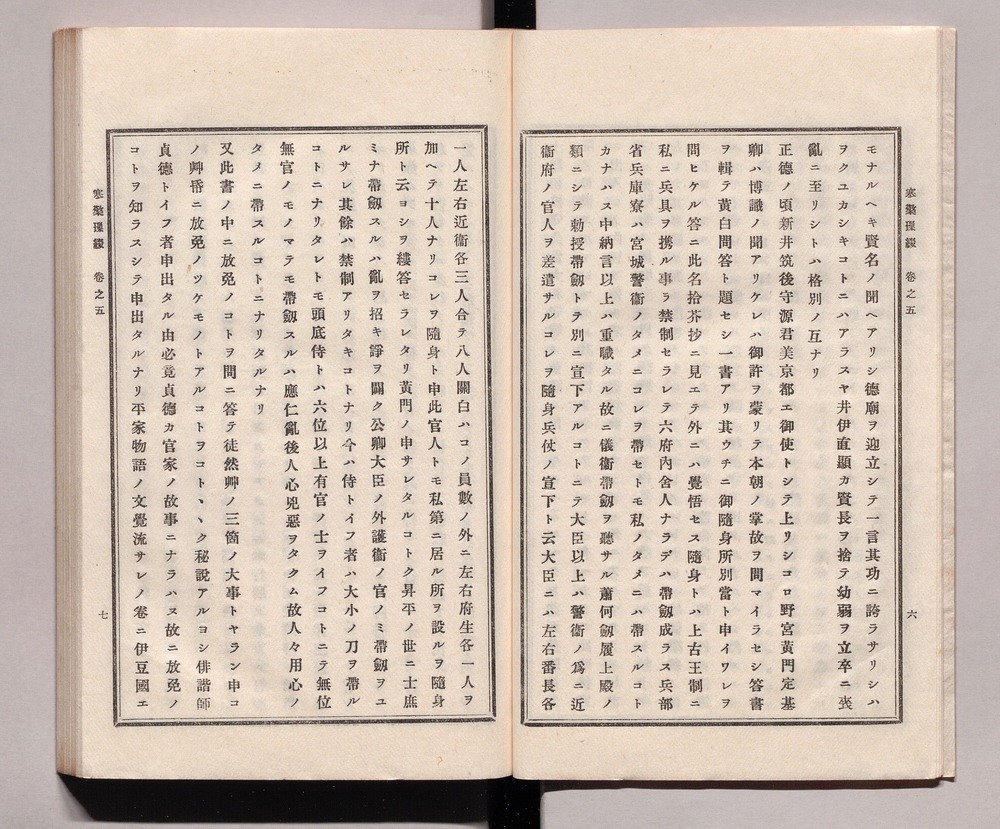 寒檠璅綴　卷之五
モナルヘキ賢名ノ聞ヘアリシ德廟ヲ迎立シテ一言其功ニ誇ラサリシハ
ヲクユカシキコトニハアラスヤ井伊直顯カ賢長ヲ捨テ幼弱ヲ立卒ニ喪
亂ニ至リシトハ格別ノ互ナリ
正德ノ頃新井筑後守源君美京都エ御使トシテ上リシコロ野宮黃門定基
卿ハ博識ノ聞アリケレハ御許ヲ蒙リテ本朝ノ掌故ヲ問マイラセシ答書
ヲ輯テ黃白問答ト題セシ一書アリ其ウチニ御隨身所別當ト申イワレヲ
問ヒケル答ニ此名拾芥抄ニ見エテ外ニハ覺悟セス隨身トハ上古王制ニ
私ニ兵具ヲ携ル事ラ禁制セラレテ六府內舍人ナラデハ帶劔成ラス兵部
省兵庫寮ハ宮城警衞ノタメニコレヲ帶セトモ私ノタメニハ帶スルコト
カナハス中納言以上ハ重職タル故ニ儀衞帶劔ヲ聽サル蕭何劔履上殿ノ
類ニシテ勅授帶劔トテ別ニ宣下アルコトニテ大臣以上ハ警衞ノ爲ニ近
衞府ノ官人ヲ差遣サルコレヲ隨身兵仗ノ宣下ト云大臣ニハ左右番長各
六
一人左右近衞各三人合テ八人關白ハコノ員數ノ外ニ左右府生各一人ヲ
加ヘテ十人ナリコレヲ隨身ト申此官人トモ私第ニ居ル所ヲ設ルヲ隨身
所ト云ヨシヲ縷答セラレタリ黃門ノ申サレタルコトク昇平ノ世ニ士庶
ミナ帶劔スルハ亂ヲ招キ諍ヲ鬪ク公卿大臣ノ外護衞ノ官ノミ帶劔ヲユ
ルサレ其餘ハ禁制アリタキコトナリ今ハ侍トイフ者ハ大小ノ刀ヲ帶ル
コトニナリタレトモ頭底侍トハ六位以上有官ノ士ヲイフコトニテ無位
無官ノモノマテモ帶劔スルハ應仁亂後人心兇惡ヲタクム故人々用心ノ
タメニ帶スルコトニナリタルナリ
又此書ノ中ニ放免ノコトヲ問ニ答テ徒然艸ノ三箇ノ大事トヤラン申コ
ノ艸昏ニ放免ノツケモノトアルコトヲコトヽヽク秘說アルヨシ俳諧師
貞德トイフ者申出タル由必竟貞德カ官家ノ故事ニナラハス故ニ放免ノ
コトヲ知ラスシテ申出タルナリ平家物語ノ文覺流サレノ卷ニ伊豆國エ
寒檠璅綴　卷之五
七